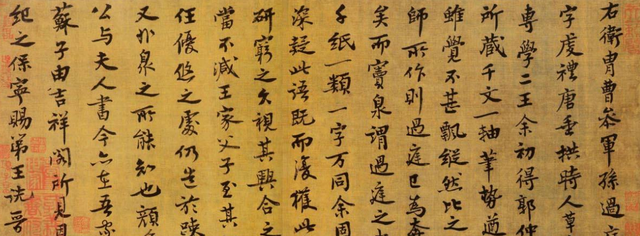 右衛胄曹參軍孫過
字虔禮唐垂拱時人草
專學二王余初得郭仲
所藏千文一軸筆勢遒
雖覺不甚飄縱然比之
師所作則過庭已為奔
矣而竇泉謂過庭之
千紙一類一字万同余固
深疑此語既而復獲此
研窮之久視其興合之
當不減王家父子至其
任優悠之處仍造於疎
又非泉之所能知也顏
公与夫人書今亦在吾家
蘇子由吉祥閣所見同
紀之保寧賜第王詵晉